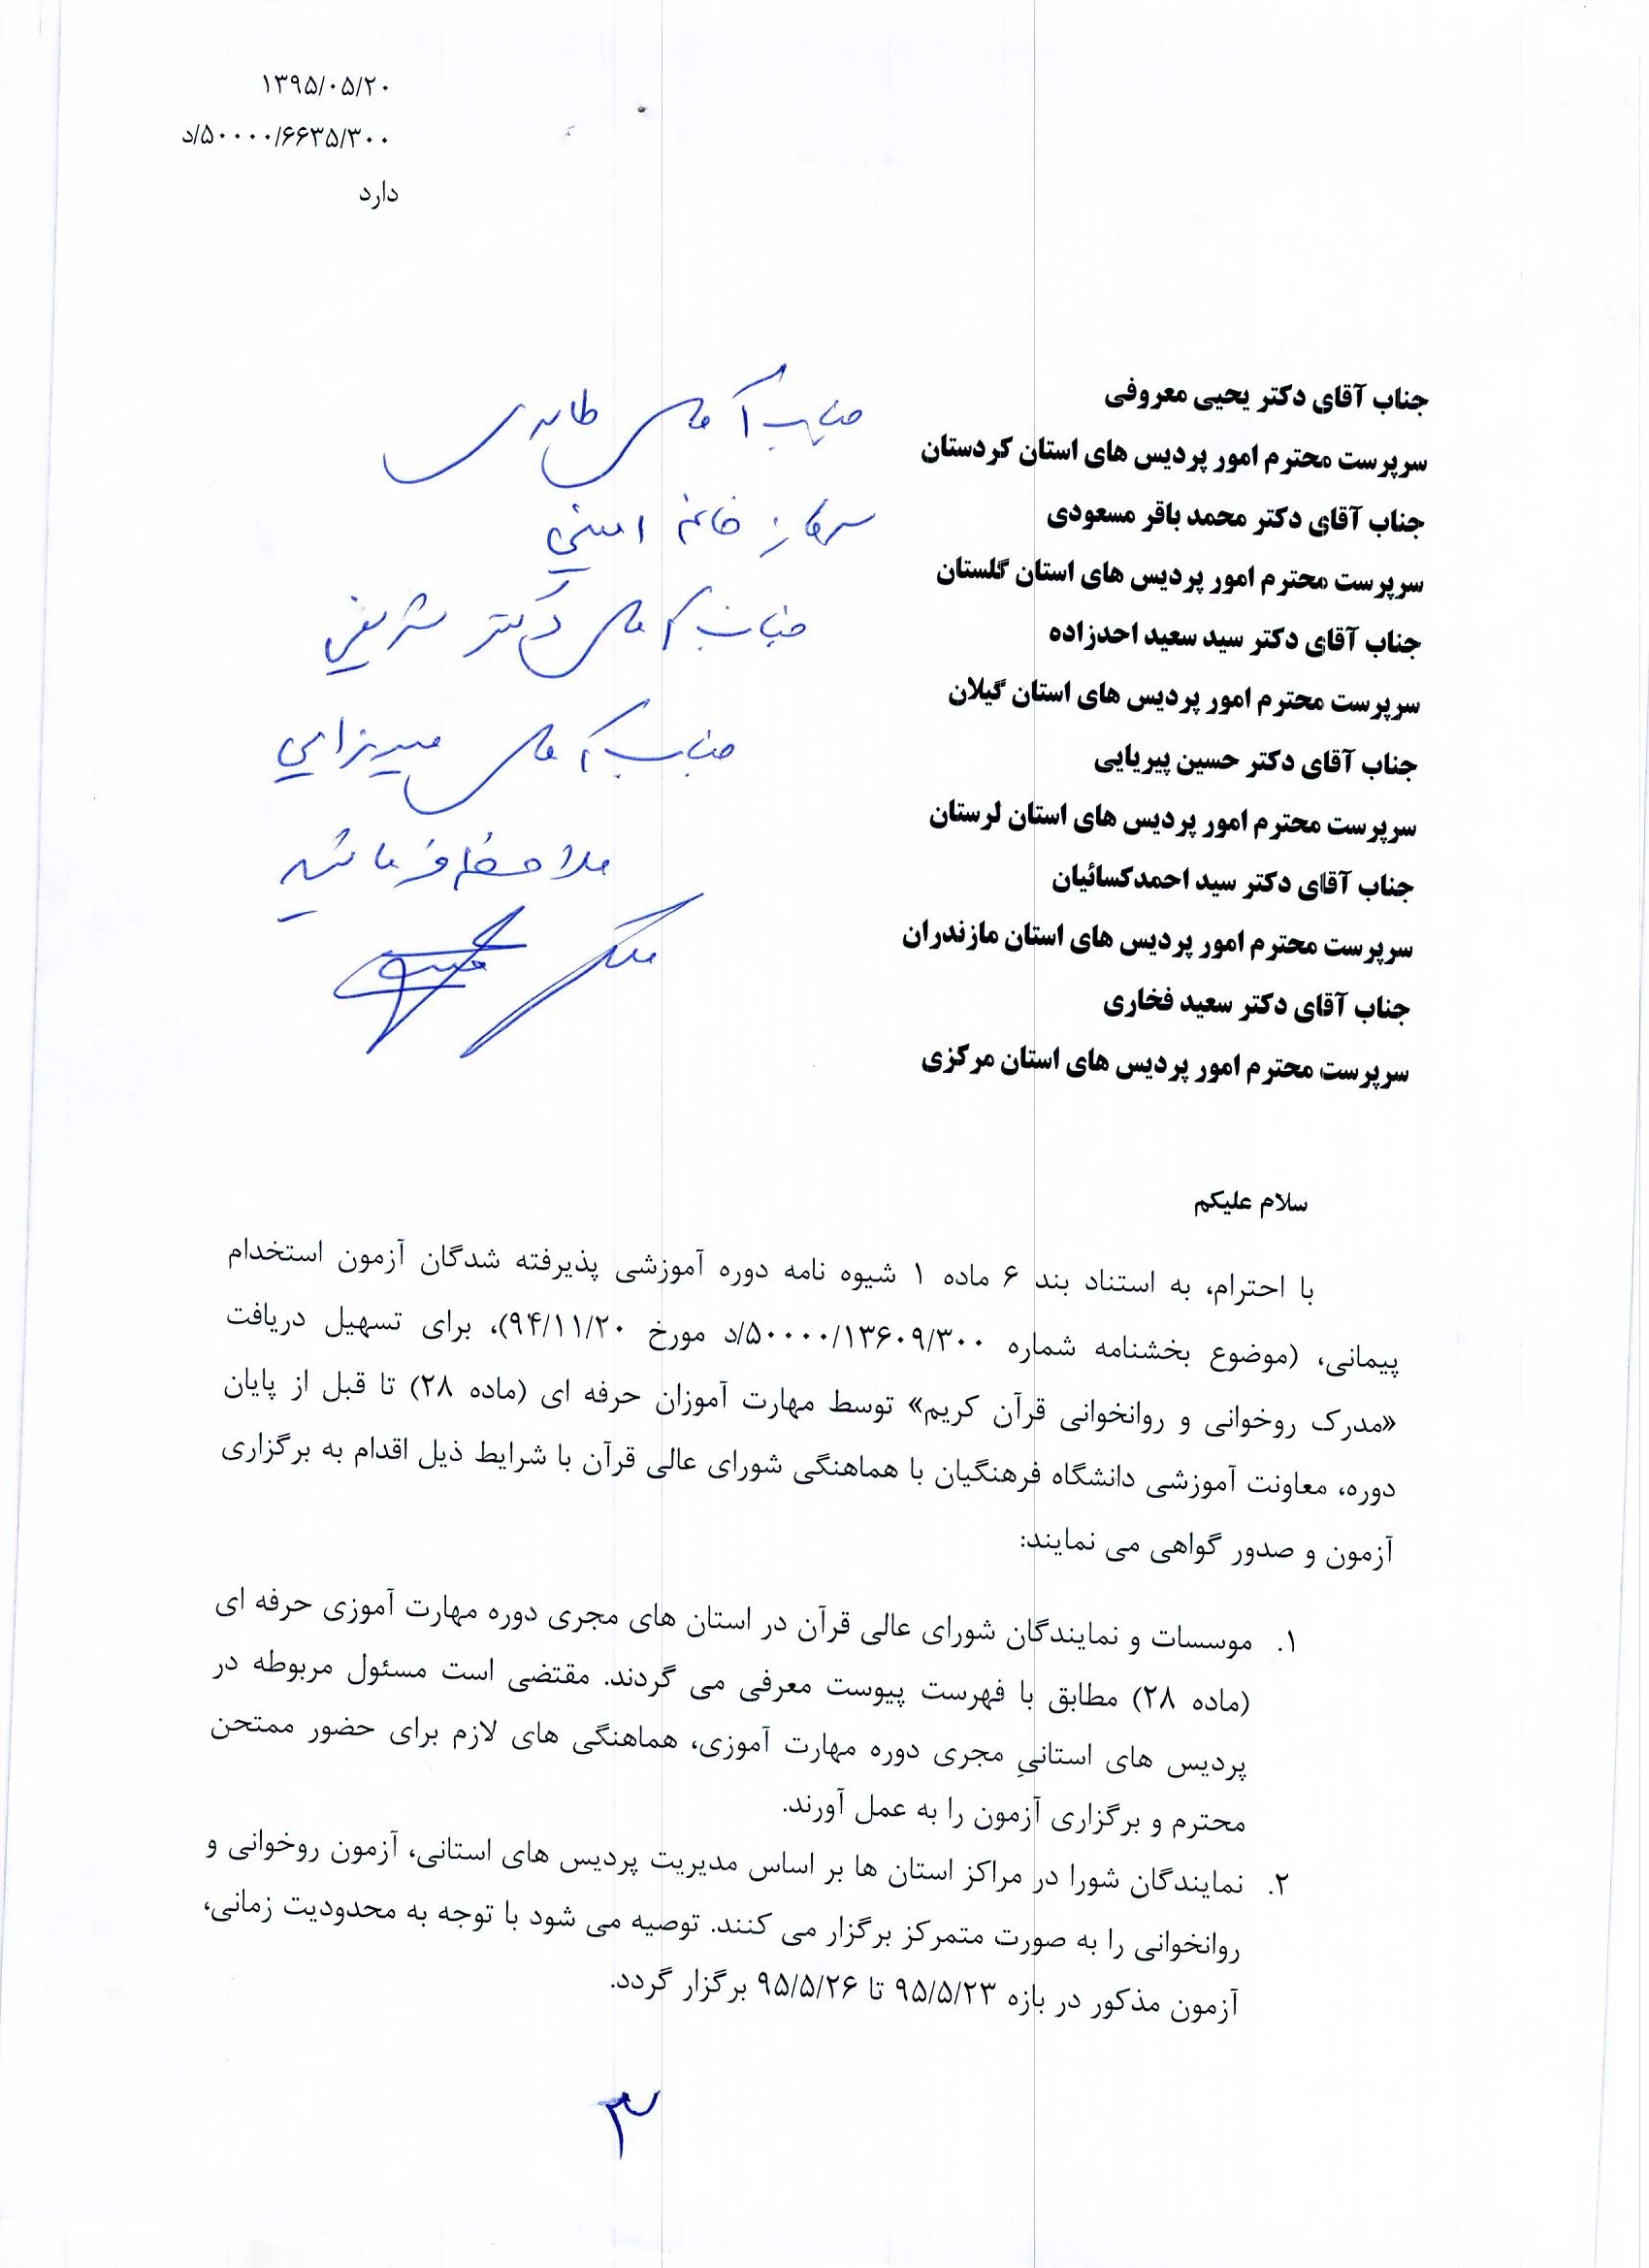 ۱۳۹۵/۰۵/۲۰
۵۰۰۰۰/۶۶۳۵/۳۰۰/د
دارد
جناب آقای دکتر یحیی معروفی
سرپرست محترم امور پردیس های استان کردستان
جناب آقای دکتر محمد باقر مسعودی
سرپرست محترم امور پردیس های استان گلستان
جناب آقای دکتر سید سعید احدزاده
سرپرست محترم امور پردیس های استان گیلان
جناب آقای دکتر حسین پیریایی
سرپرست محترم امور پردیس های استان لرستان
جناب آقای دکتر سید احمدکسائیان
سرپرست محترم امور پردیس های استان مازندران
جناب آقای دکتر سعید فخاری
سرپرست محترم امور پردیس های استان مرکزی
جناب آقای
سرکار خانم امینی
جناب آقای دکتر شریفی
جناب آقای میرزایی
ملاحظه فرمائید
سلام علیکم
با احترام، به استناد بند ۶ ماده ۱ شیوه نامه دوره آموزشی پذیرفته شدگان آزمون استخدام
پیمانی، (موضوع بخشنامه شماره ۵۰۰۰۰/۱۳۶۰۹/۳۰۰/د مورخ ۹۴/۱۱/۲۰)، برای تسهیل دریافت
«مدرک روخوانی و روانخوانی قرآن کریم» توسط مهارت آموزان حرفه ای (ماده ۲۸) تا قبل از پایان
دوره، معاونت آموزشی دانشگاه فرهنگیان با هماهنگی شورای عالی قرآن با شرایط ذیل اقدام به برگزاری
آزمون و صدور گواهی می نمایند:
۱. موسسات و نمایندگان شورای عالی قرآن در استان های مجری دوره مهارت آموزی حرفه ای
(ماده ۲۸) مطابق با فهرست پیوست معرفی می گردند. مقتضی است مسئول مربوطه در
پردیس های استانیِ مجری دوره مهارت آموزی، هماهنگی های لازم برای حضور ممتحن
محترم و برگزاری آزمون را به عمل آورند.
۲. نمایندگان شورا در مراکز استان ها بر اساس مدیریت پردیس های استانی، آزمون روخوانی و
روانخوانی را به صورت متمرکز برگزار می کنند. توصیه می شود با توجه به محدودیت زمانی،
آزمون مذکور در بازه ۹۵/۵/۲۳ تا ۹۵/۵/۲۶ برگزار گردد.
۳